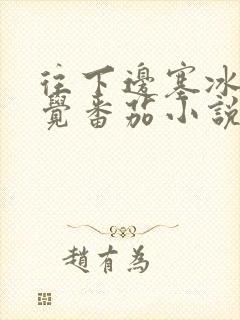 往下邊塞冰
覺番茄小說
趙有為